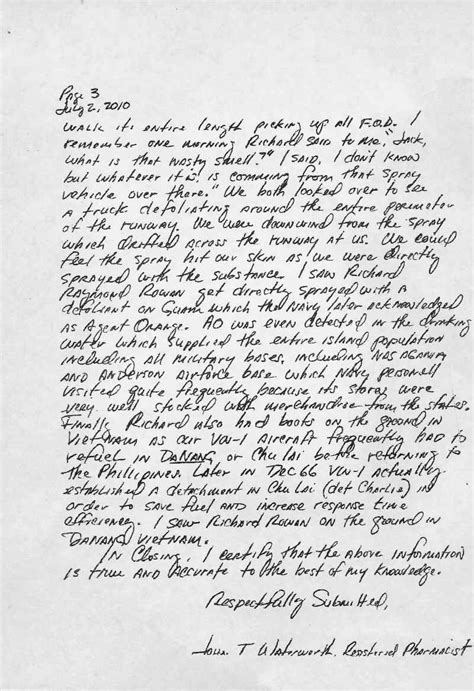 Page 3
July 2, 2010
walk its entire length picking up all F.O.D. I
remember one morning Richard said to me, "Jack,
what is that nasty smell?" I said, I don't know
but whatever it is is comming from that spray
vehicle over there." We both looked over to see
a truck defoliating around the entire perimeter
of the runway. We were downwind from the spray
which drifted across the runway at us. We could
feel the spray hit our skin as we were directly
sprayed with the substance. I saw Richard
Raymond Rowan get directly sprayed with a
defoliant on Guam which the Navy later acknowledged
as Agent Orange. AO was even detected in the drinking
water which supplied the entire island population
including all military bases, including NAS Agana
and Anderson Airforce base which Navy personell
visited quite frequently because its stores were
very well stocked with merchandise from the states.
Finally Richard also had boots on the ground in
Vietnam as our VW-1 aircraft frequently had to
refuel in DaNang, or Chu Lai before returning to
the Phillipines. Later in Dec 66 VW-1 actually
established a detachment in Chu Lai (det Charlie) in
order to save fuel and increase response time
efficiency. I saw Richard Rowan on the ground in
DaNang Vietnam.
In closing, I certify that the above information
is true and accurate to the best of my knowledge.
Respectfully Submitted,
John T Waterworth, Registered Pharmacist